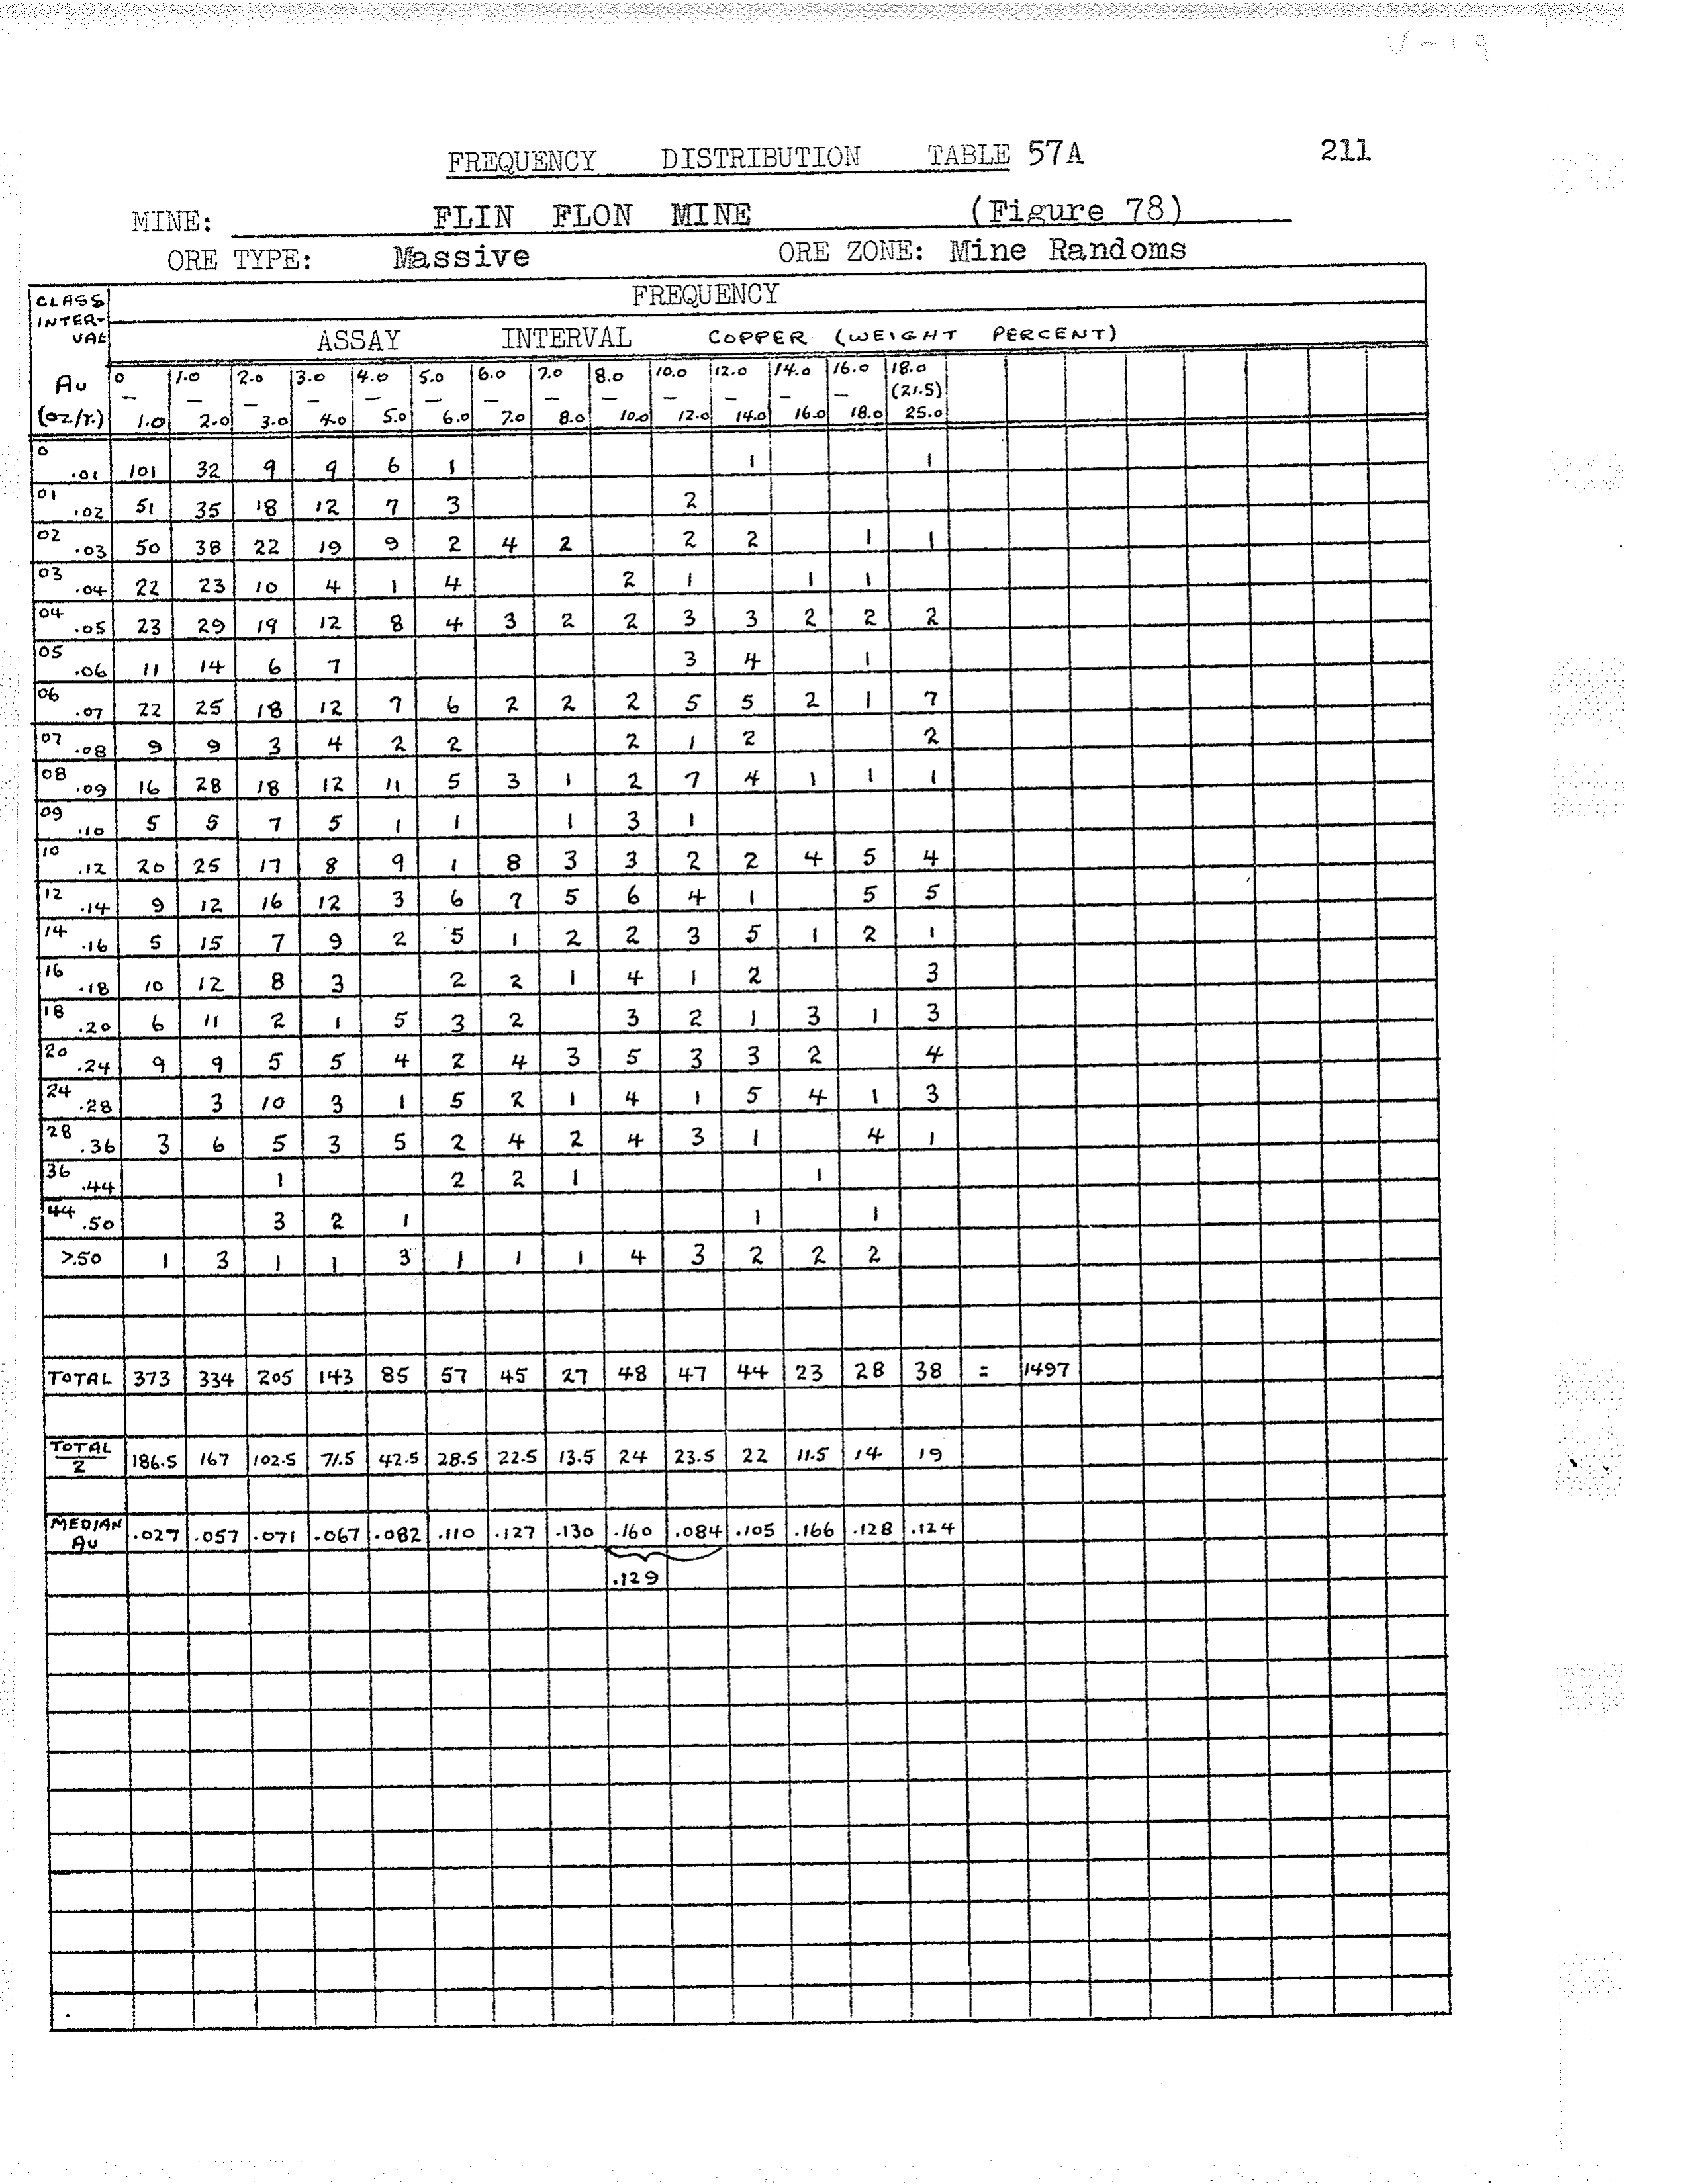 V-19
FREQUENCY DISTRIBUTION TABLE 57A 211
MINE: FLIN FLON MINE (Figure 78)
ORE TYPE: Massive ORE ZONE: Mine Randoms
CLASS INTER-VAL FREQUENCY
ASSAY INTERVAL COPPER (WEIGHT PERCENT)
Au (oz/T.) 0 – 1.0 1.0 – 2.0 2.0 – 3.0 3.0 – 4.0 4.0 – 5.0 5.0 – 6.0 6.0 – 7.0 7.0 – 8.0 8.0 10.0 10.0 – 12.0 12.0 – 14.0 14.0 – 16.0 16.0 – 18.0 18.0 (21.5) 25.0
0 .01 101 32 9 9 6 1 1 1
01 .02 51 35 18 12 7 3 2
02 .03 50 38 22 19 9 2 4 2 2 2 1 1
03 .04 22 23 10 4 1 4 2 1 1 1
04 .05 23 29 19 12 8 4 3 2 2 3 3 2 2 2
05 .06 11 14 6 7 3 4 1
06 .07 22 25 18 12 7 6 2 2 2 5 5 2 1 7
07 .08 9 9 3 4 2 2 2 1 2 2
08 .09 16 28 18 12 11 5 3 1 2 7 4 1 1 1
09 .10 5 5 7 5 1 1 1 3 1
10 .12 20 25 17 8 9 1 8 3 3 2 2 4 5 4
12 .14 9 12 16 12 3 6 7 5 6 4 1 5 5
14 .16 5 15 7 9 2 5 1 2 2 3 5 1 2 1
16 .18 10 12 8 3 2 2 1 4 1 2 3
18 .20 6 11 2 1 5 3 2 3 2 1 3 1 3
20 .24 9 9 5 5 4 2 4 3 5 3 3 2 4
24 .28 3 10 3 1 5 2 1 4 1 5 4 1 3
28 .36 3 6 5 3 5 2 4 2 4 3 1 4 1
36 .44 1 2 2 1 1
44 .50 3 2 1 1 1
>.50 1 3 1 1 3 1 1 1 4 3 2 2 2
TOTAL 373 334 205 143 85 57 45 27 48 47 44 23 28 38 = 1497
TOTAL 2 186.5 167 102.5 71.5 42.5 28.5 22.5 13.5 24 23.5 22 11.5 14 19
MEDIAN Au .027 .057 .071 .067 .082 .110 .127 .130 .160 .084 .105 .166 .128 .124
.129